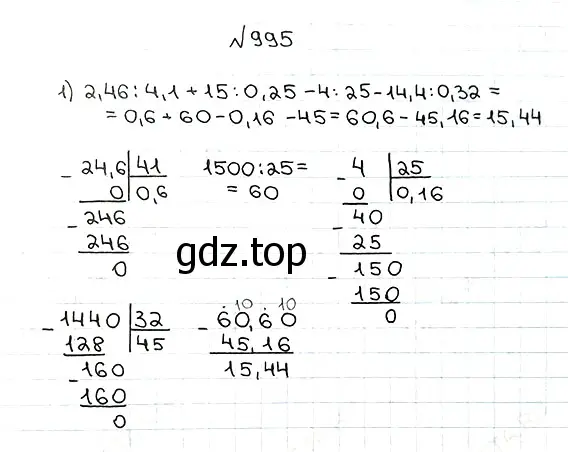 №995
1) 2,46 : 4,1 + 15 : 0,25 - 4 : 25 - 14,4 : 0,32 =
= 0,6 + 60 - 0,16 - 45 = 60,6 - 45,16 = 15,44
- 24,6 | 41
0 | 0,6
- 246
246
0
1500 : 25 =
= 60
- 4 | 25
0 | 0,16
- 40
25
- 150
150
0
gdz.top
- 1440 | 32
128 | 45
- 160
160
0
10 10
- 60,60
45,16
15,44